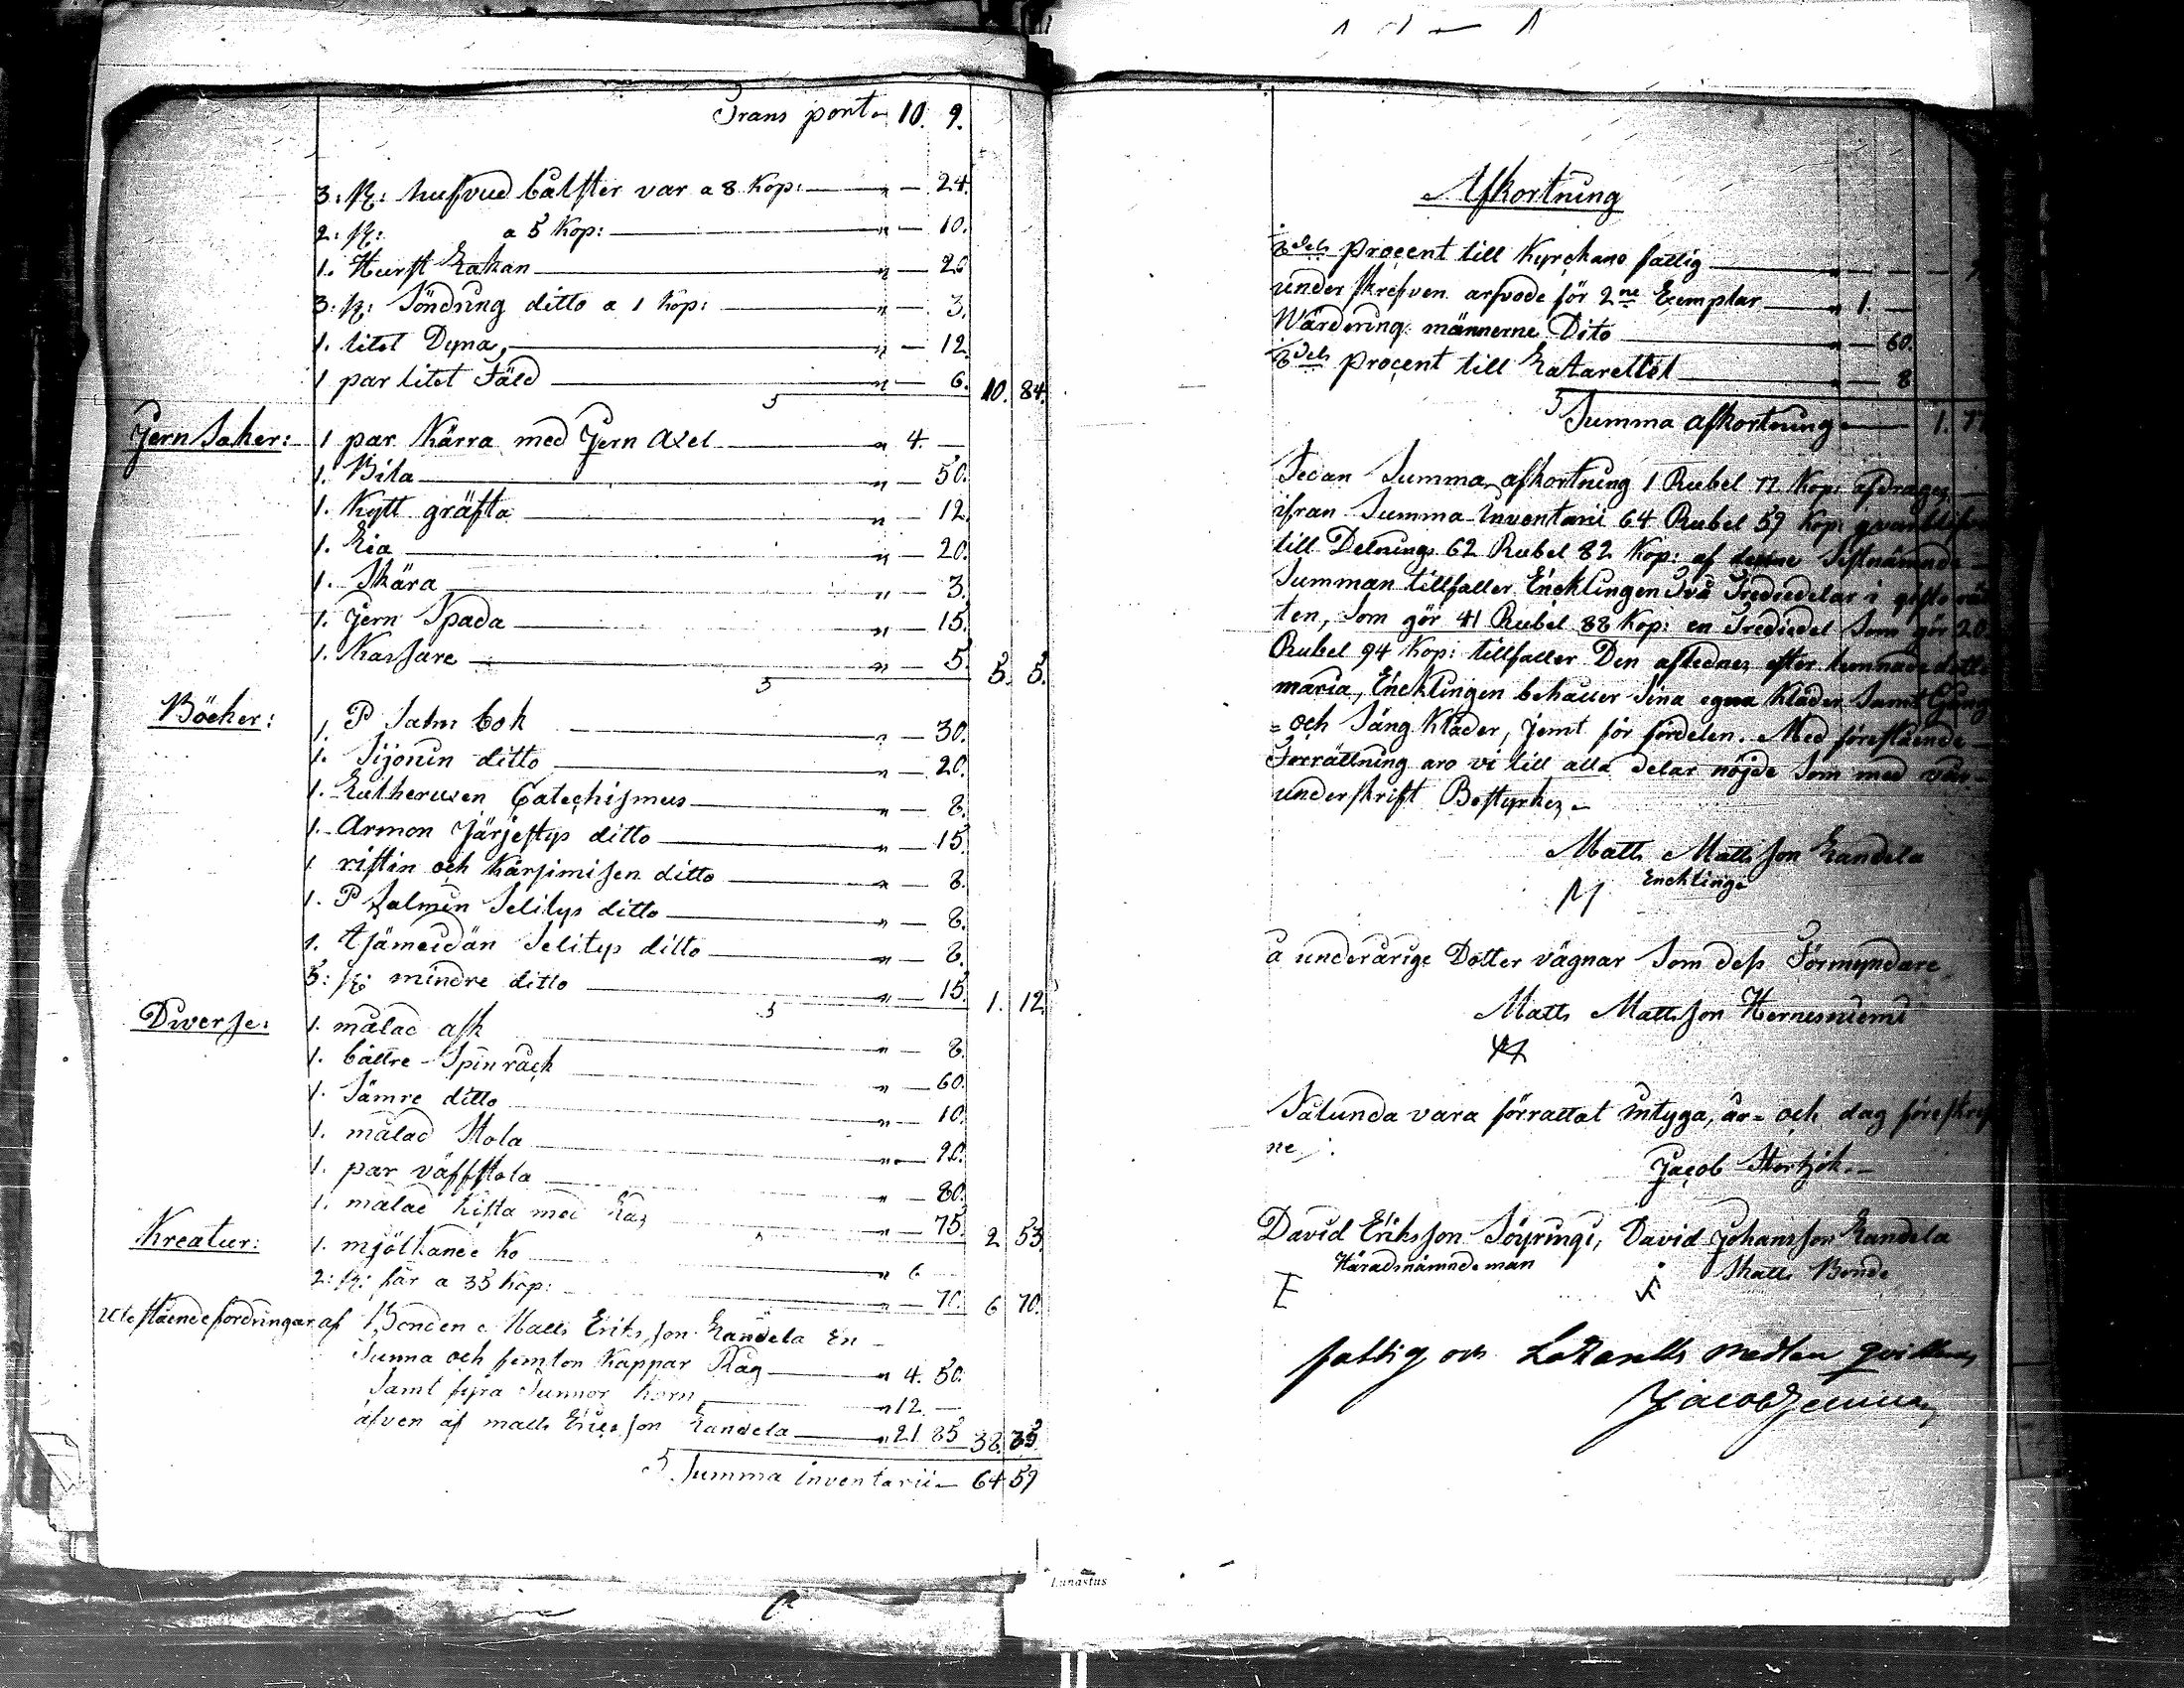 Transport 10. 9.
3: st: hufvud bålster var a 8 Kop: " — 24.
2: st: a 5 Kop: " — 10.
1. Hurst Lakan " — 20
3: st: Söndrug ditto a 1 Kop: " — 3.
1. litet Dyna, " — 12
1 par litet Fäld " — 6. 10. 84.
Jern Saker: 1 par Kärra med Jern Axel " 4. —
1. Bila " — 50.
1. Kytt gräfta " — 12.
1. Lia " — 20.
1. Skära " — 3.
1. Jern Spada " — 15.
1. Kassare " — 5. 5. 5.
Böcker:
1. P Salm bok " — 30.
1. Sijonin ditto " — 20.
1. Lutheruxen Catechismus " — 8.
1. Armon Järjestys ditto " — 15.
1 ristin och Kärsimisen ditto " — 8.
1. P Salmin Selitys ditto " — 8.
1. Isämeidän Selitys ditto " — 8.
5: st: mindre ditto " — 15. 1. 12.
Diverse: 1. målad ask " — 8.
1. bättre Spinråck " — 60.
1. Sämre ditto " — 10.
1. målad Stola " — 20.
1. par väffstola " — 80.
1. målad kista med Lås " — 75. 2 53.
Kreatur: 1. mjölkande Ko " 6 —
2: st: får a 35 Kop: " — 70. 6 70.
Utestående fordringar af Bonden Matts Eriksson Landela En
Tunna och femton Kappar Råg " 4. 50.
Samt fyra Tunnor Korn " 12. —
äfven af matts Ericsson Landela " 21 85 38. 35.
Summa inventarii 64 59
Afkortning
procent till Kyrckans fattig
underskrefven arfvode för 2ne Exemplar " 1. —
Wärdering männerne Dito " — 60.
procent till Latarettet " — 8
Summa afkortning 1. 77
Sedan Summa afkortning 1 Rubel 77 Kop: afdrages
ifran Summa Inventarii 64 Rubel 59 Kop:
till Delnings 62 Rubel 82 Kop: af denne Sistnämnde
Summan tillfaller Encklingen Två Tredjedelar i gifto rä
ten, Som gör 41 Rubel 88 Kop: en Trediedel Som gör 20
Rubel 94 Kop: tillfaller Den aflednes efter lemnade dotter
maria, Encklingen behåller Sina egna Kläder Samt Gång
= och Säng Kläder, jemt för fördelen. Med förestående
Förrättning äro vi till alla delar nöjde Som med vår
underskrift Bestyrkes
Matts Mattsson Landela
Encklinge
å underårige Dotter vägnar Som dess Förmyndare
Matts Mattsson Hernesniemi
Sålunda vara förrättat intyga, år- och dag föreskrif
ne
Jacob Stortzök
David Eriksson Söyringi, David Johansson Landela
Häradsnämndeman Skatte Bonde
fattig och Lazaretts medlen qvitteras
Jacob
Lunastus